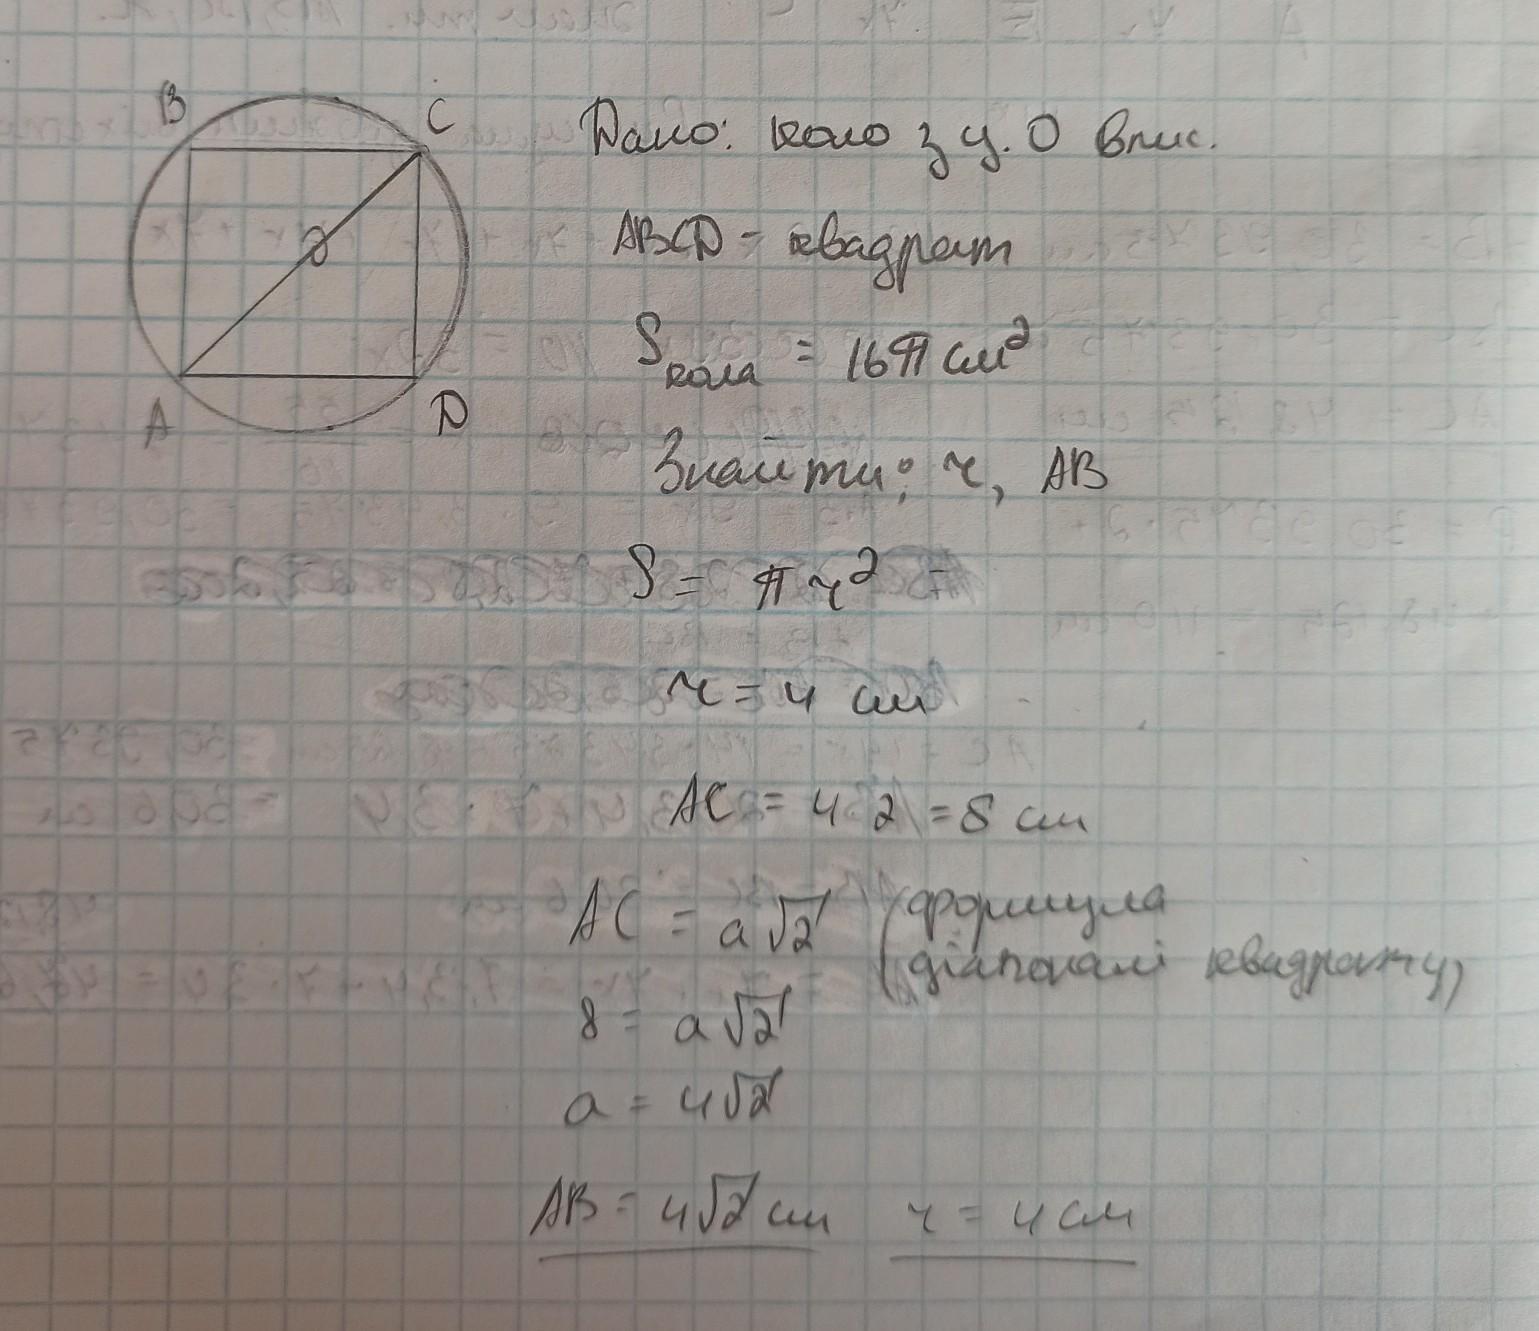 B
C
O
A
D
Дано: коло з ц. О впис.
ABCD - квадрат
Sкола = 16π см²
Знайти: r, AB
S = πr² =
r = 4 см
AC = 4·2 = 8 см
AC = a√2 (формула
діагоналі квадрату)
8 = a√2
a = 4√2
AB = 4√2 см r = 4 см